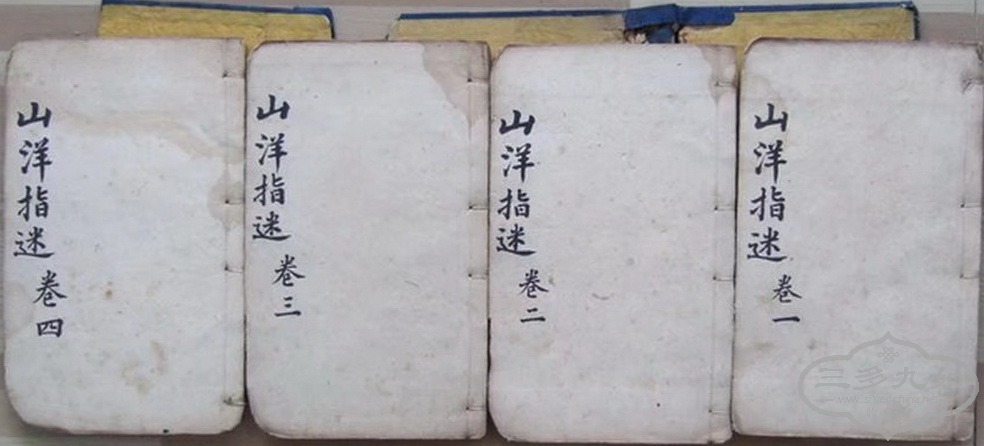 山洋指迷 卷一
山洋指迷 卷二
山洋指迷 卷三
山洋指迷 卷四
三多九